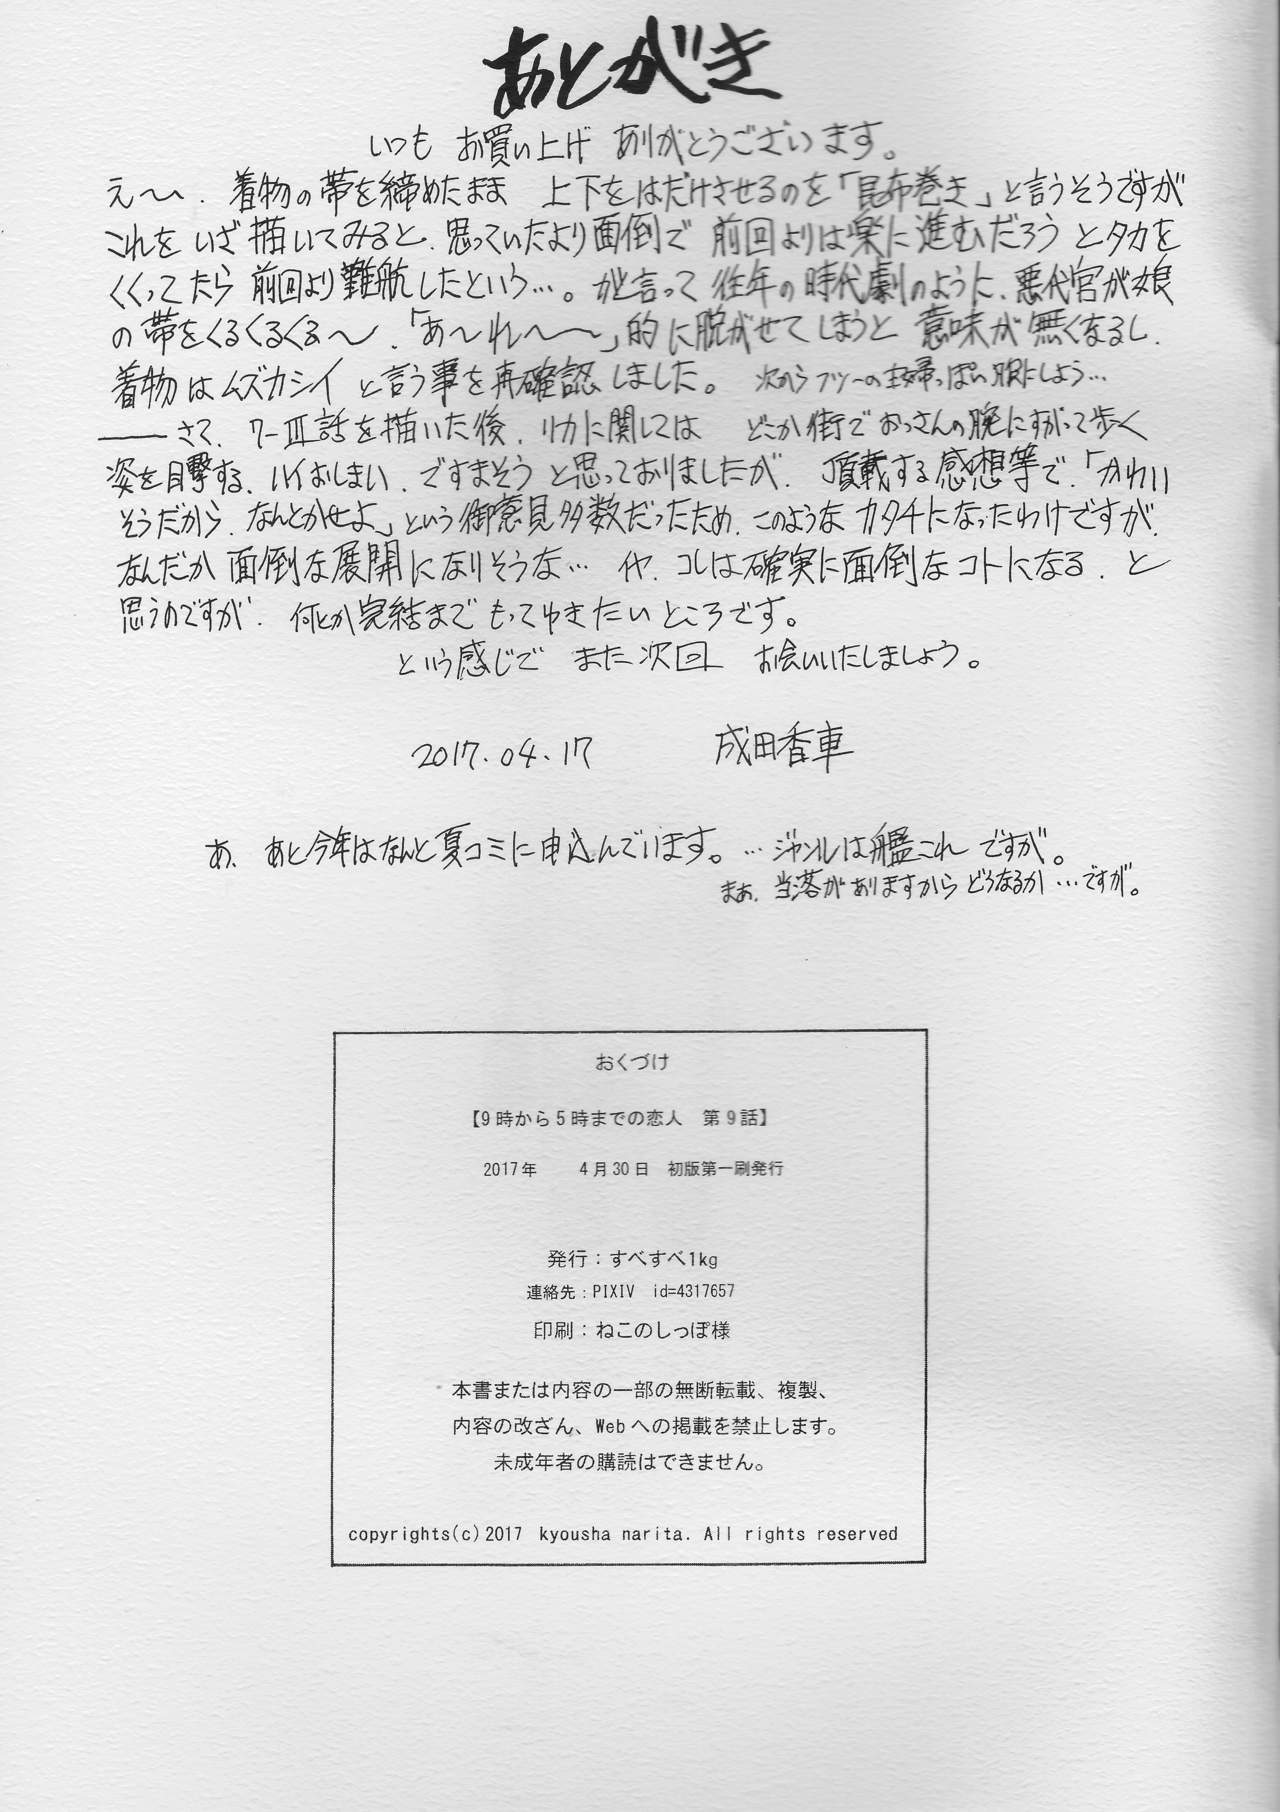 あとがき
いつも お買い上げ ありがとうございます。
え～、着物の帯を締めたまま 上下をはだけさせるのを「昆布巻き」と言うそうですが
これを いざ 描いてみると、思っていたより面倒で 前回よりは楽に進むだろう とタカを
くくってたら 前回より難航したという…。かと言って 往年の時代劇のように、悪代官が娘
の帯をくるくるくる～、「あ～れ～～」的に脱がせてしまうと 意味が無くなるし、
着物はムズカシイ と言う事を再確認しました。 次からフツーの主婦っぽい服にしよう…
――さて、7-Ⅲ話を描いた後、リカに関しては どこか街でおっさんの腕にすがって歩く
姿を目撃する、ハイおしまい、ですまそう と思っておりましたが、頂戴する感想等で、「かわい
そうだから、なんとかせよ」という御意見多数だったため、このような カタチになったわけですが、
なんだか 面倒な展開になりそうな… イヤ、コレは確実に面倒なコトになる、と
思うのですが、何とか完結まで もってゆきたいところです。
という感じで また次回 お会いいたしましょう。
2017.04.17 成田香車
あ、あと今年はなんと夏コミに申込んでいます。…ジャンルは艦これ ですが。
まぁ、当落がありますから どうなるか…ですが。
おくづけ
【9時から5時までの恋人 第9話】
2017年 4月30日 初版第一刷発行
発行：すべすべ1kg
連絡先：PIXIV id=4317657
印刷：ねこのしっぽ様
本書または内容の一部の無断転載、複製、
内容の改ざん、Webへの掲載を禁止します。
未成年者の購読はできません。
copyrights(c)2017 kyousha narita. All rights reserved